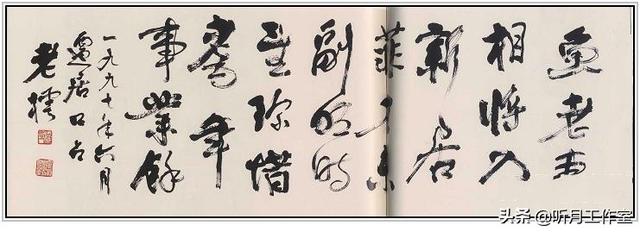 老
相將入
新居
菲才未
副明時
望珍惜
耄年
事業餘
一九九七年六月
遷居口占
老
头条@听月工作室